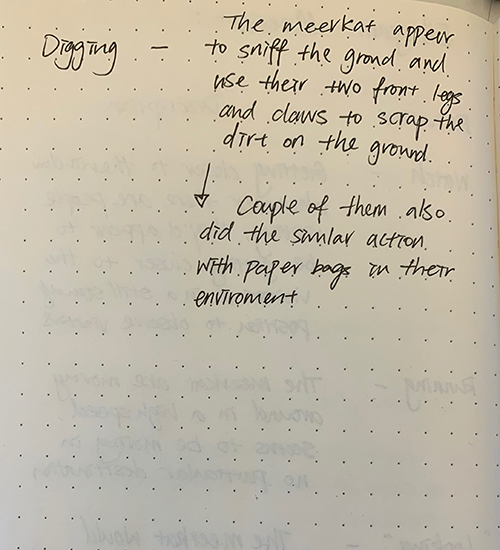 The meerkat appear
Digging — to sniff the grond and
use their two front legs
and claws to scrap the
dirt on the ground.
Couple of them also
did the simlar action
with paper bags in their
enviroment